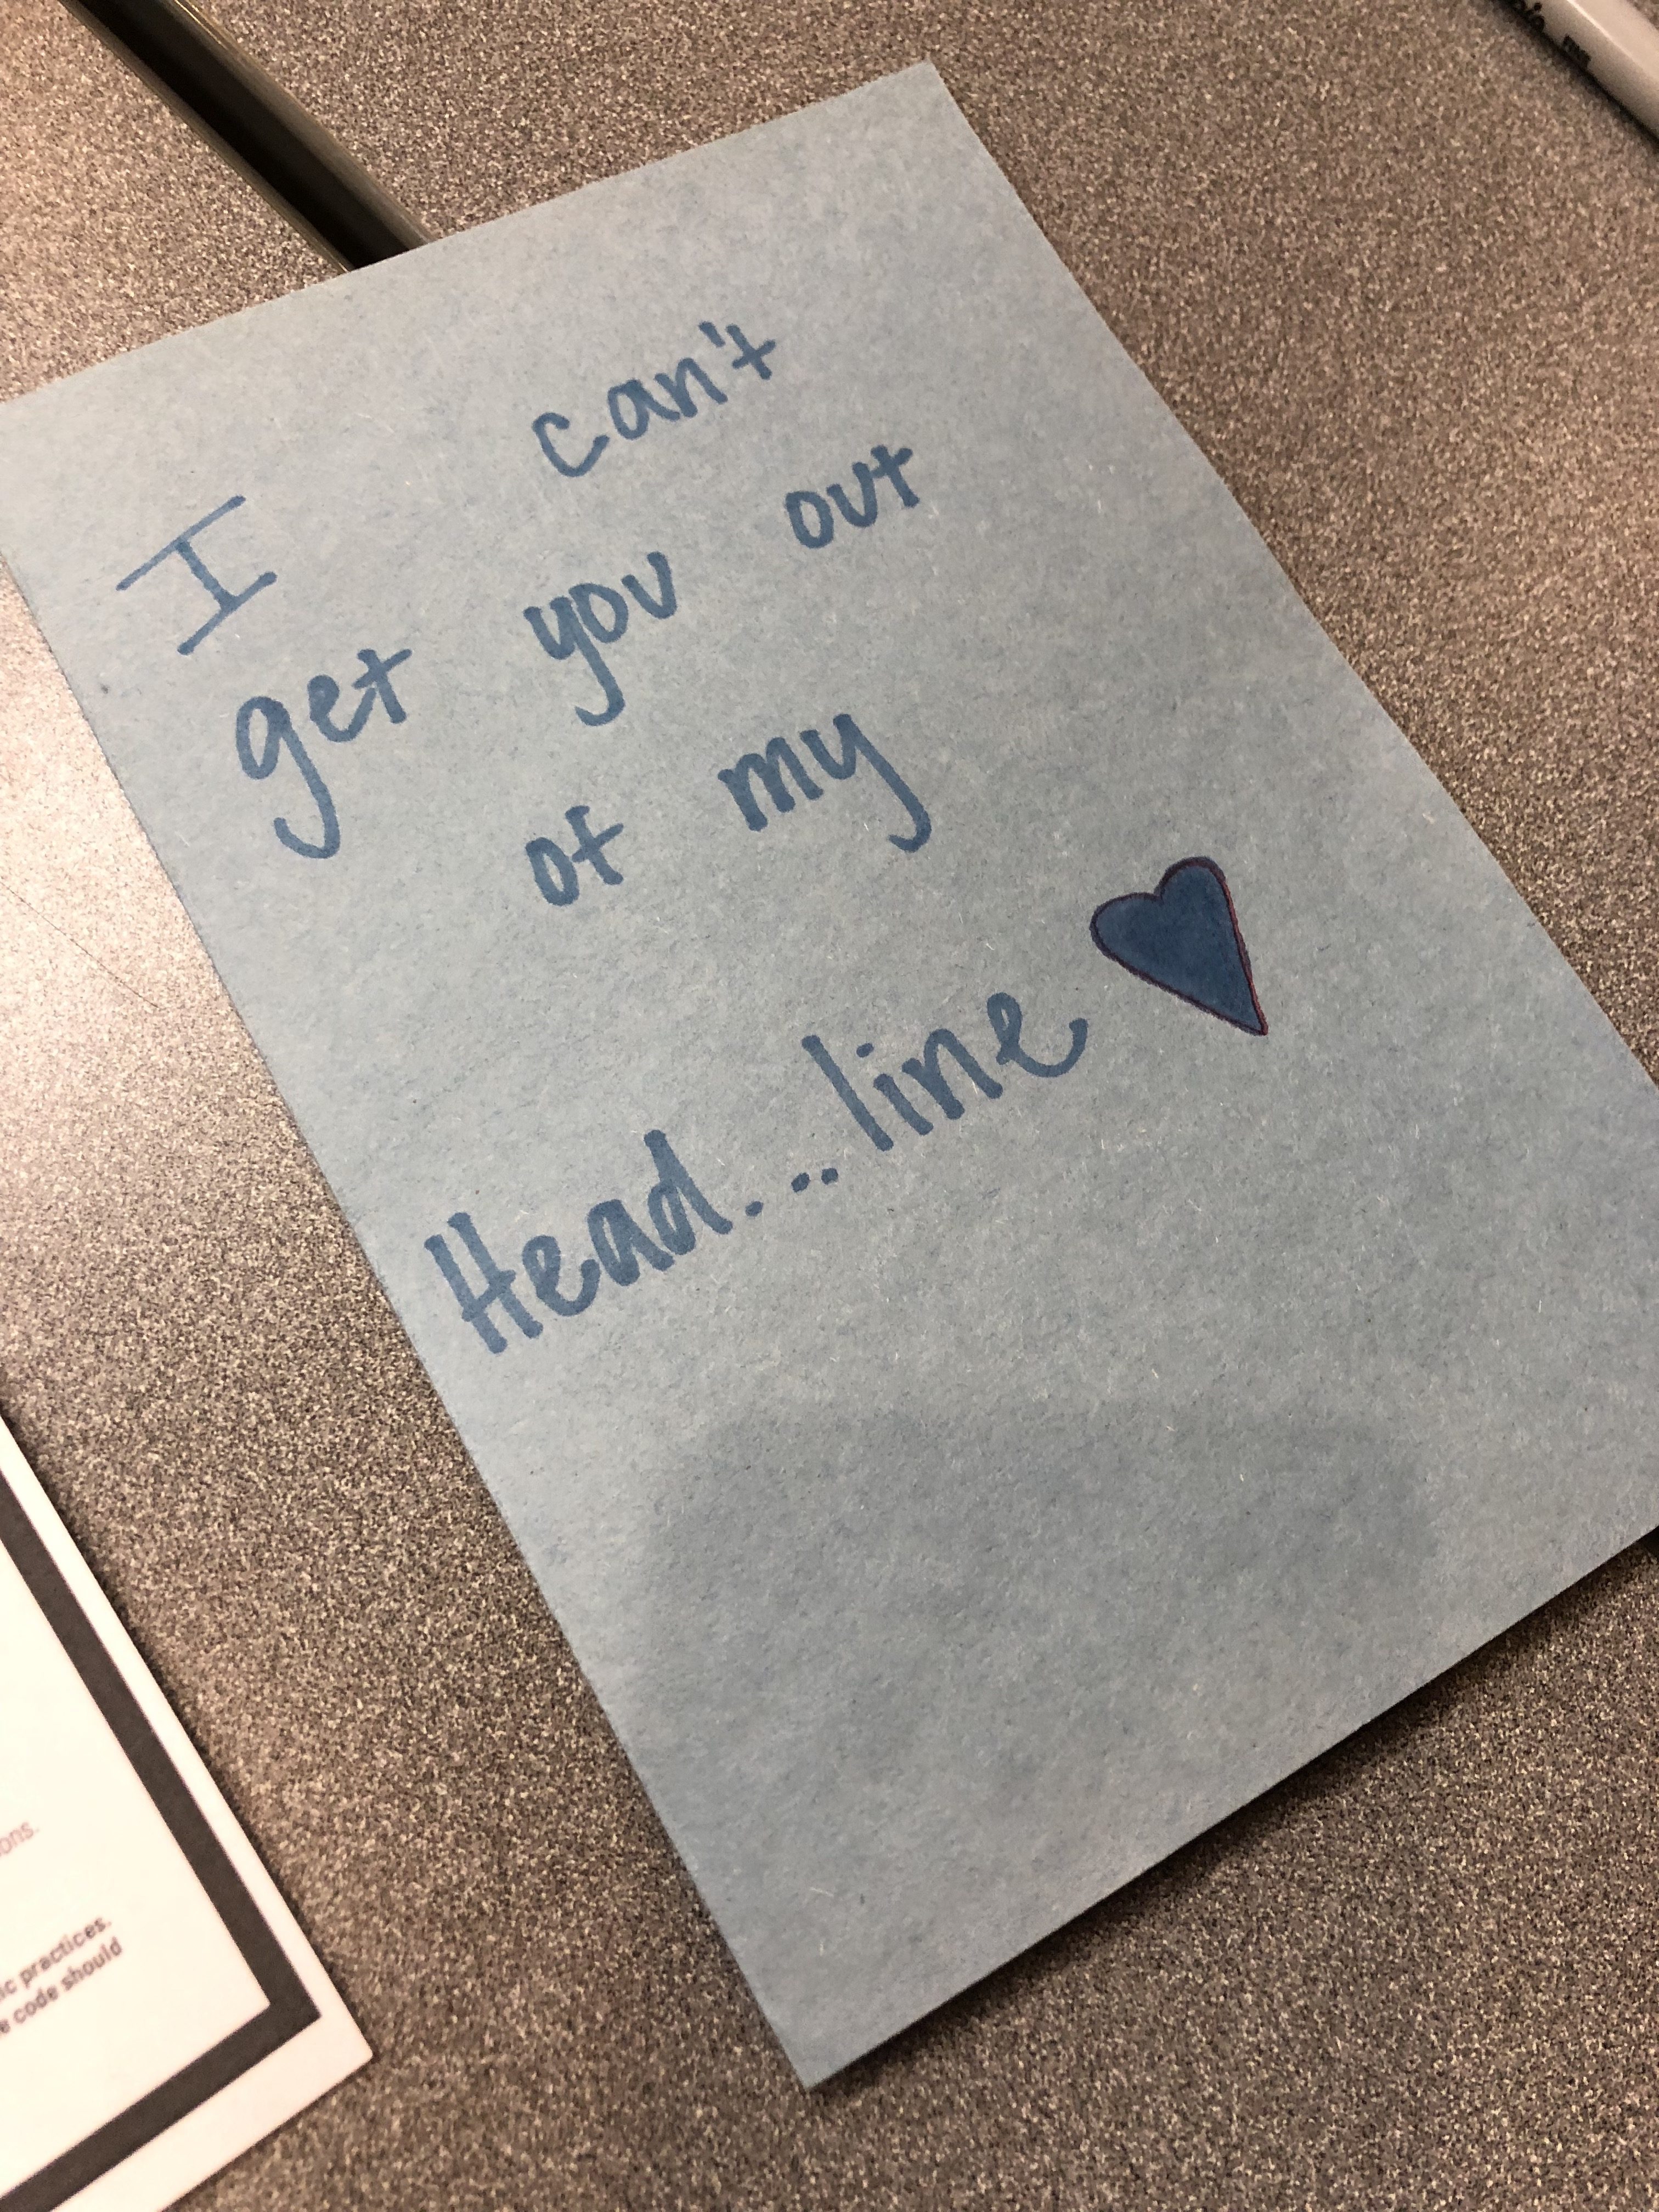 I can't
get you out
of my
Head...line
FINE
ons.
ic practices.
e code should